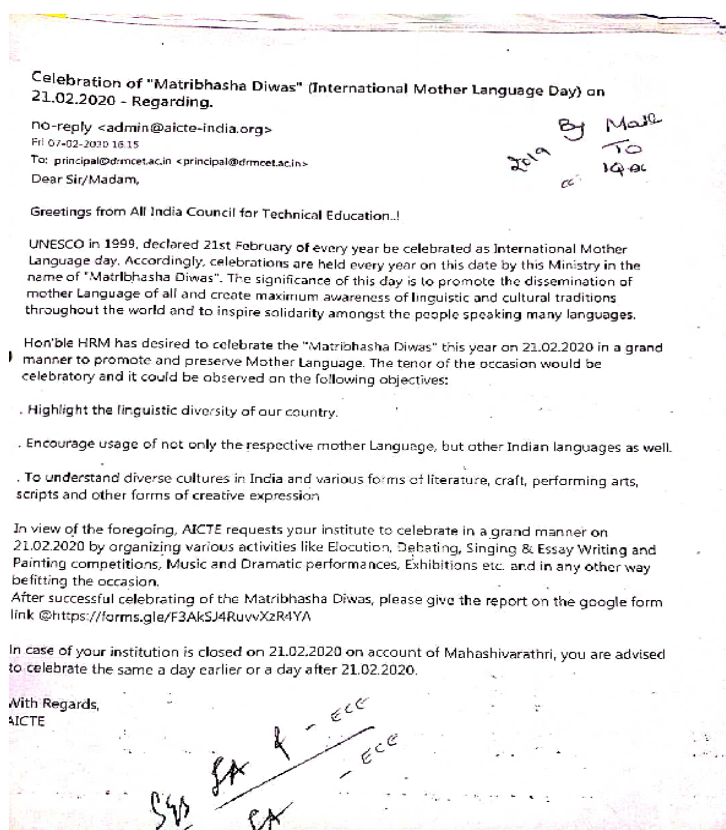 Celebration of "Matribhasha Diwas" (International Mother Language Day) on
21.02.2020 - Regarding.
no-reply <admin@aicte-india.org>
Fri 07-02-2020 16:15
To: principal@drmcet.ac.in <principal@drmcet.ac.in>
Dear Sir/Madam,
By Mail
To
2019
IQAC
cc:
Greetings from All India Council for Technical Education..!
UNESCO in 1999, declared 21st February of every year be celebrated as International Mother
Language day. Accordingly, celebrations are held every year on this date by this Ministry in the
name of "Matribhasha Diwas". The significance of this day is to promote the dissemination of
mother Language of all and create maximum awareness of linguistic and cultural traditions
throughout the world and to inspire solidarity amongst the people speaking many languages.
Hon'ble HRM has desired to celebrate the "Matribhasha Diwas" this year on 21.02.2020 in a grand
manner to promote and preserve Mother Language. The tenor of the occasion would be
celebratory and it could be observed on the following objectives:
. Highlight the linguistic diversity of our country.
. Encourage usage of not only the respective mother Language, but other Indian languages as well.
. To understand diverse cultures in India and various forms of literature, craft, performing arts,
scripts and other forms of creative expression
In view of the foregoing, AICTE requests your institute to celebrate in a grand manner on
21.02.2020 by organizing various activities like Elocution, Debating, Singing & Essay Writing and
Painting competitions, Music and Dramatic performances, Exhibitions etc. and in any other way
befitting the occasion.
After successful celebrating of the Matribhasha Diwas, please give the report on the google form
link @https://forms.gle/F3AkSJ4RuvvXzR4YA
In case of your institution is closed on 21.02.2020 on account of Mahashivarathri, you are advised
to celebrate the same a day earlier or a day after 21.02.2020.
With Regards,
AICTE
- ECE
- ECE